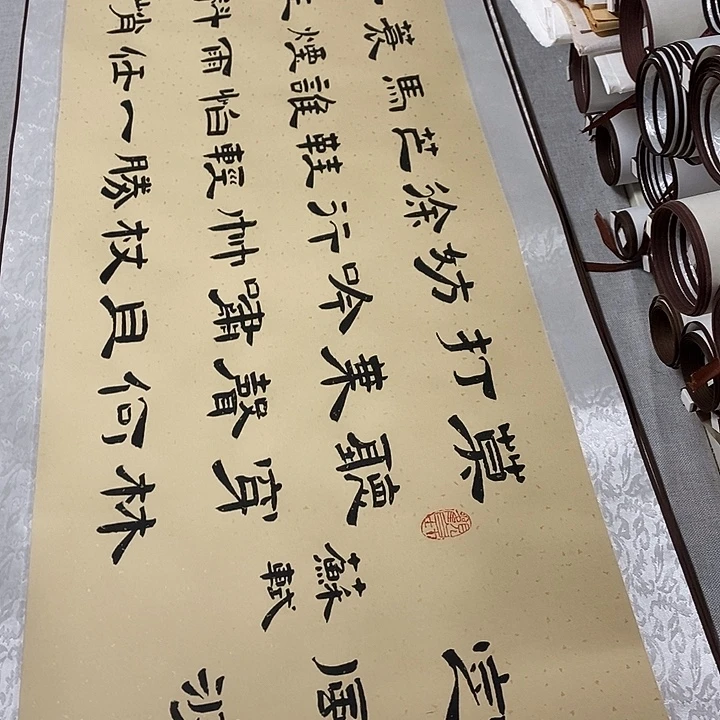 定風波
蘇軾
莫聽穿林
打葉聲何
妨吟嘯且
徐行竹杖
芒鞋輕勝
馬誰怕一
蓑煙雨任
生料峭